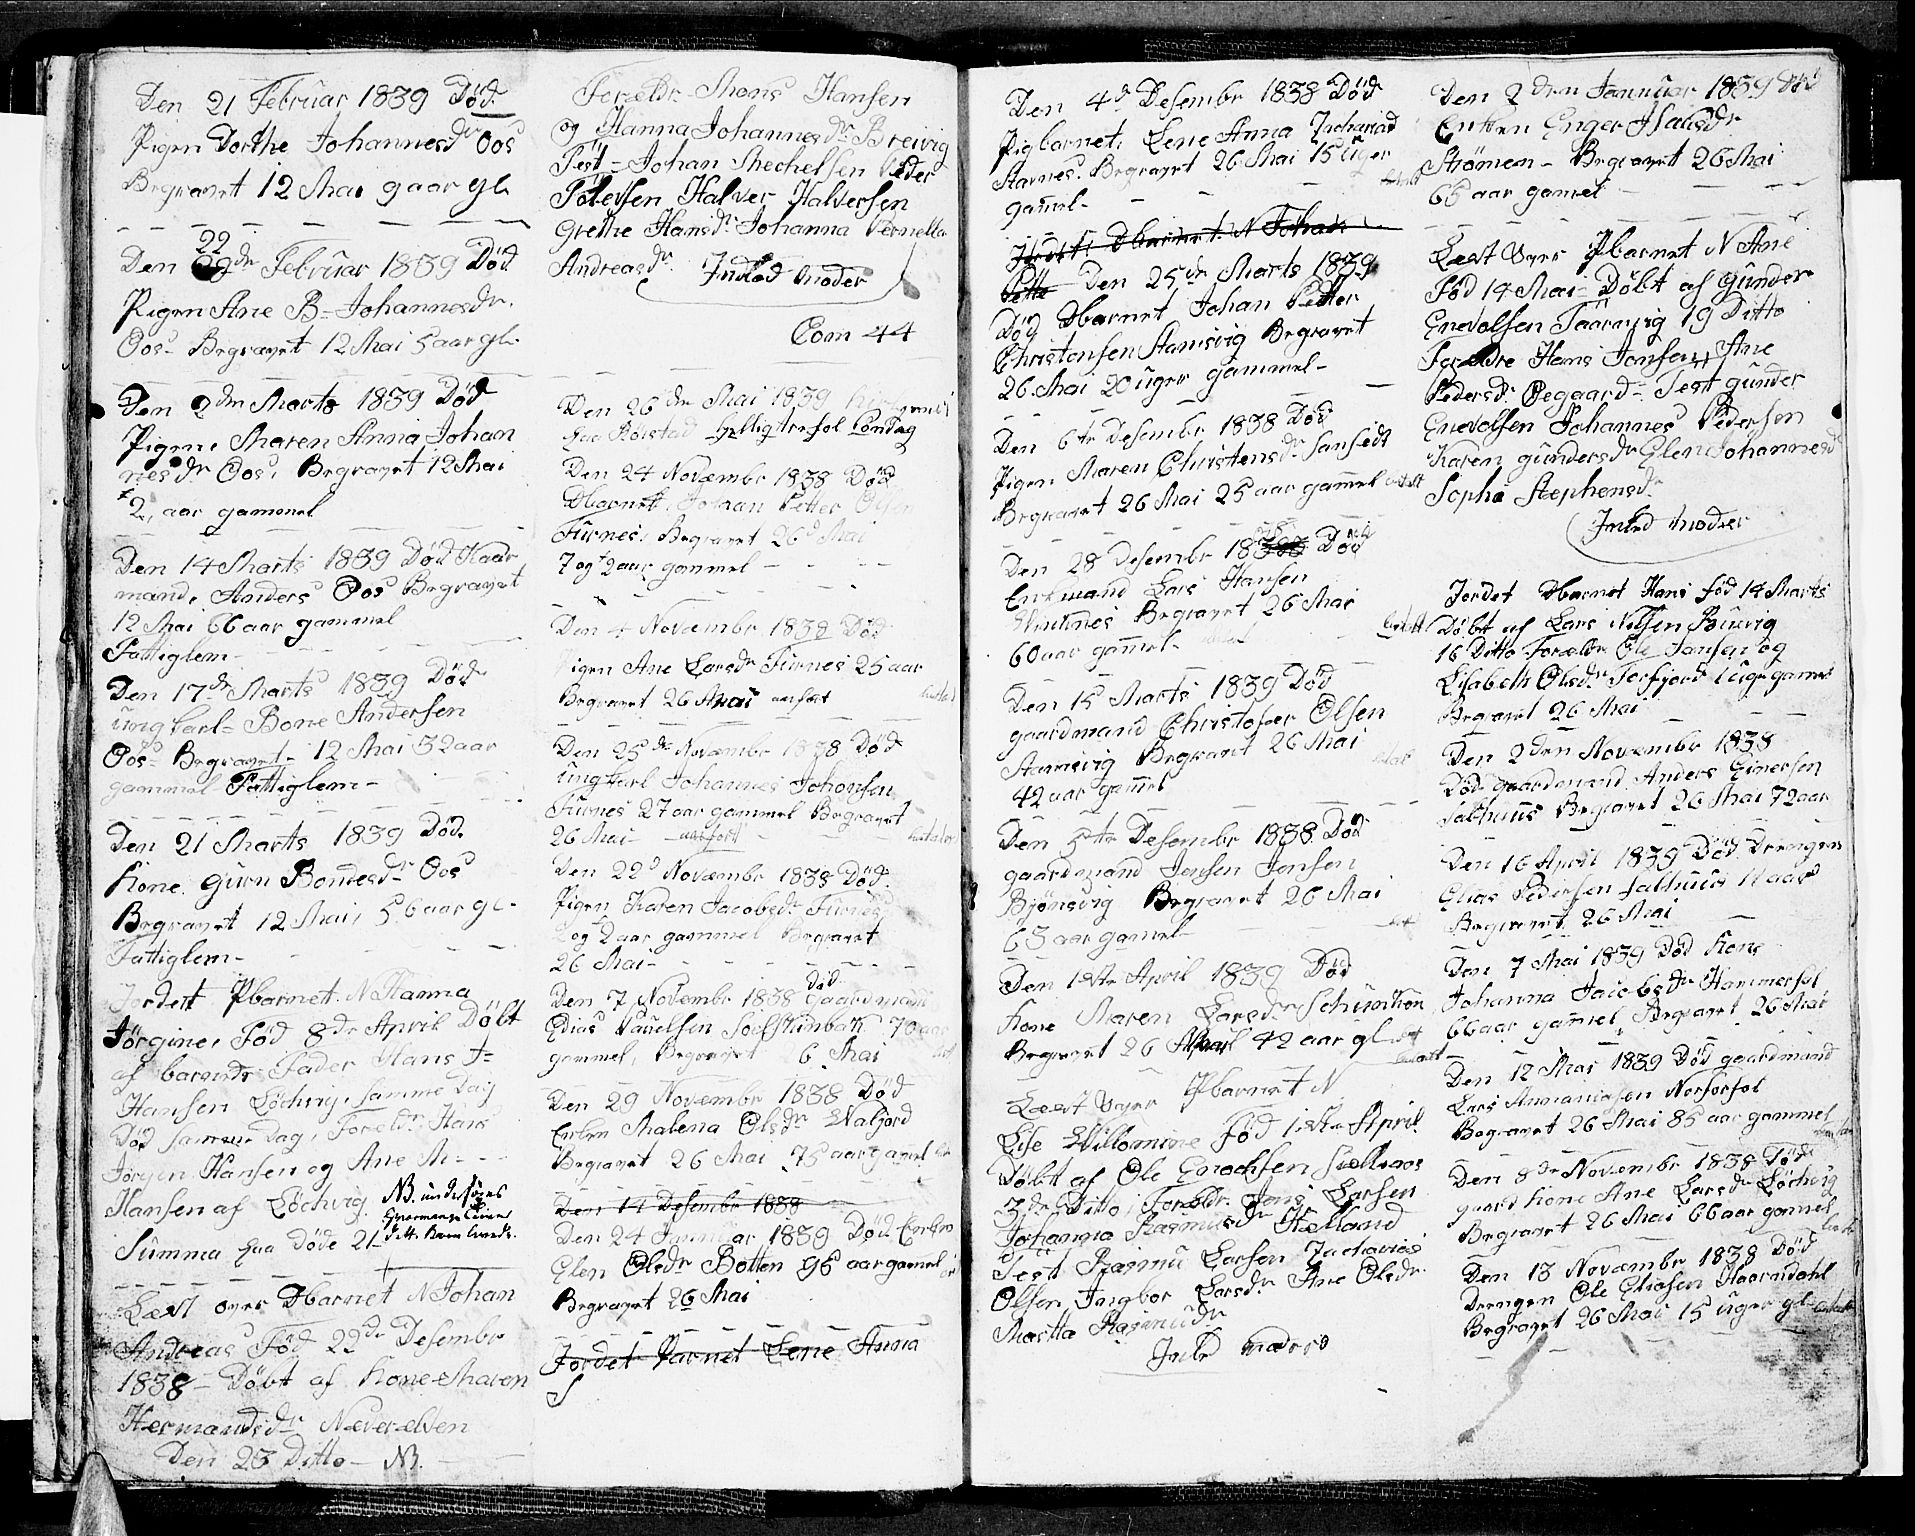 Den 21 Februar 1839 Død
Pigen Dorthe Johannesdr Oos
Begravet 12 Mai gaar gl.
22
Den dr Februar 1839 Død
Pigen Ane B- Johannesdr.
Oos- Begravet 12 Mai 5 aar gl.
Den 2den Marts 1839 Død
Pigen, Maren Anna Johan
nesdr Oos, Begravet 12 Mai
½ aar gammel
Den 14 Marts 1839 Død Kaar
mand, Anders Oos Begravet
12 Mai 66 aar gammel
Fattiglem-
Den 17de Marts 1839 Død
ungkarl- Bone Andersen
Oos- Begravet- 12 Mai 32 aar
gammel Fattiglem-
Den 21 Marts 1839 Død
Kone Guru Bontesdr Oos
Begravet 12 Mai, 56 aar gl-
Fattiglem-
Jordet Pbarnet N Hanna
Jörgine, Fød 8de April Döbt
af barnets Fader Hans J=
Hansen Löchvig, samme Dag
Død samme Dag, Foreldr Hans
Jørgen Hansen og Ane M-
Hansen af Löchvig. NB. undersøges
Summa paa Døde 21-
Læst over Dbarnet N Johan
Andreas Fød 22de Desember
1838- Döbt af Kone Maren
Hermandsdr Næverelven
Den 23 Ditto- NB.
Foreldr Mons Hansen
og Hanna Johannesdr Breivig
Test- Johan Mechelsen Peder
Tolevsen Halver Halversen
Grethe Hansdr Johanna Pernella
Andreasdr Indled Moder
Com 44
Den 26de Mai 1839
paa Rølstad Helligtrefol Søndag
Den 24 Novembr 1838 Død
Dbarnet, Johan Petter
Furnes, Begravet 26d Mai
7 og ½ aar gammel-
Den 4 Novembr 1838 Død
Pigen Ane Larsdr Furnes 25 aar
Begravet 26 Mai anført
Den 25de Novembr 1838 Død
ungkarl Johannes Johonsen
Furnes 27 aar gammel Begravet
26 Mai- anført
Den 22d Novembr 1838 Død.
Pigen Karen Jacobsdr Furnes
2 og ½ aar gammel Begravet
26 Mai-
Død
Den 7 Novembr 1838 Gaardmand
Elias Paulsen Solstinbak 70 aar
gammel, Begravet 26 Mai
Den 29 Novembr 1838 Død
Enken Malena Olsdr Walfjord
Begravet 26 Mai 75 aar gamel
Den 14 Desember 1838
Den 24 Januar 1839 Død Enken
Elen Olsdr Botten 96 aar gamel
Begravet 26 Mai
Jordet Parnet Lene Anna
S
Den 4d Desembr 1838 Død
Pigbarnet, Lene Anna Zachariad
Stavnes. Begravet 26 Mai 15 uger
gamel-
Jordet Dbarnet N Johan
Pette Den 25de Marts 1839
Død Dbarnet Johan Petter
Christensen Stamsvig Begravet
26 Mai 20 uger gammel-
Den 6te Desembr 1838 Død
Pigen Maren Christensdr Sanset
Begravet 26 Mai 25 aar gamel
Den 28 Desembr 1838 Død
Enkmand Lars Hansen
Begravet 26 Mai
60 aar gamel-
Den 15 Marts 1839 Død
gaardmand Christofer Olsen
Stamsvig Begravet 26 Mai
42 aar gamel
Den 5te Desembr 1838 Død
gaardmand Jensen Jensen
Bjönsvig Begravet 26 Mai
63 aar gamel-
Den 1ste April 1839 Død
Kone Maren Larsdr
Begravet 26 Mai 42 aar gl
Læst over Pbarnet N
Lise Willomine Fød 1ste April
Döbt af Ole Enochsen
3de Ditto, Foreldr Jens Larsen
Johanna Rasmusdr Helland
Test Rasmu Larsen Zacharias
Olsen Ingbor Larsdr Ane Olsdr
Martta Rasmusdr
Inld moder
Den 2den Januar 1839 Død
Enken Enger Isaksdr
Strömen- Begravet 26 Mai
65 aar gamel
Læst over Pbarnet N Ane
Fød 14 Mai- Döbt af Gunder
Enevolsen Taarnvig 19 Ditto
Foreldre Hans Jensen, Ane
Pedersdr Øegaard- Test gunder
Enevolsen Johannes Pedersen
Karen gundersdr Elen Johannesdr
Sopha Stephensdr
Inled Moder
Jordet Dbarnet Hans fød 14 Marts
Döbt af Lars Nilsen
16 Ditto Foreldr Ole Jansen og
Lisabeth Olsdr Torfjord 1 uge gamel
Begravet 26 Mai
Den 2den November 1838
Død gaardmand Anders Einersen
Salthuus Begravet 26 Mai 72 aar
Den 16 April 1839 Død Drengen
Elias Pedersen Salthuus 11 aar
Begravet 26 Mai
Den 7 Mai 1839 Død Kone
Johanna Jacobsdr Hammersol
66 aar gamel, Begravet 26 Mai
Den 12 Mai 1839 Død gaardmand
Lars Annaniasen
Begravet 26 Mai 85 aar gammel
Den 8de November 1838 Død
gaard Kone Ane Larsdr Löchvig
Begravet 26 Mai 66 aar gamel
Den 13 Novembr 1838 Død
Drengen Ole Eliasen Haarndahl
Begravet 26 Mai 15 uger gl-